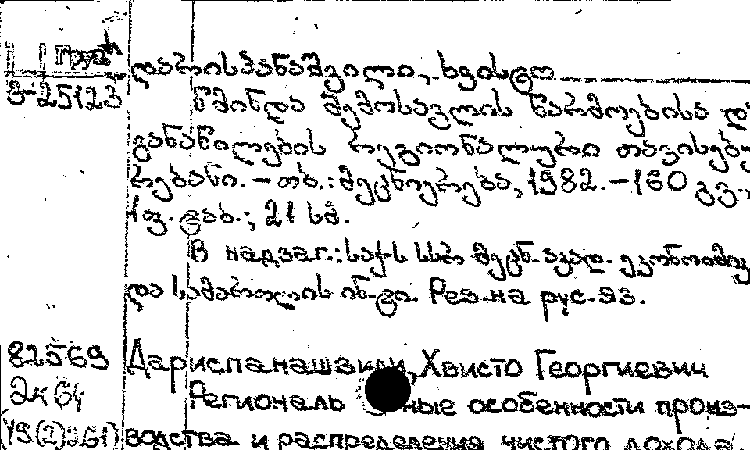 Груз
დარისპანაშვილი, ხვისტო
3-25123
წმინდა შემოსავლის წარმოებისა და
განაწილების რეგიონალური თავისებუ
რებანი. - თბ.: მეცნიერება, 1982. - 160 გვ.,
1 ფ. ტაბ.; 21 სმ.
В надзаг.: საქ. სსრ მეცნ. აკად. ეკონომიკ
და სამართლის ინ-ტი. Рез. на рус. яз.
82569 Дариспанашвили, Хвисто Георгиевич
Региональные особенности произ-
водства и распределения чистого дохода.